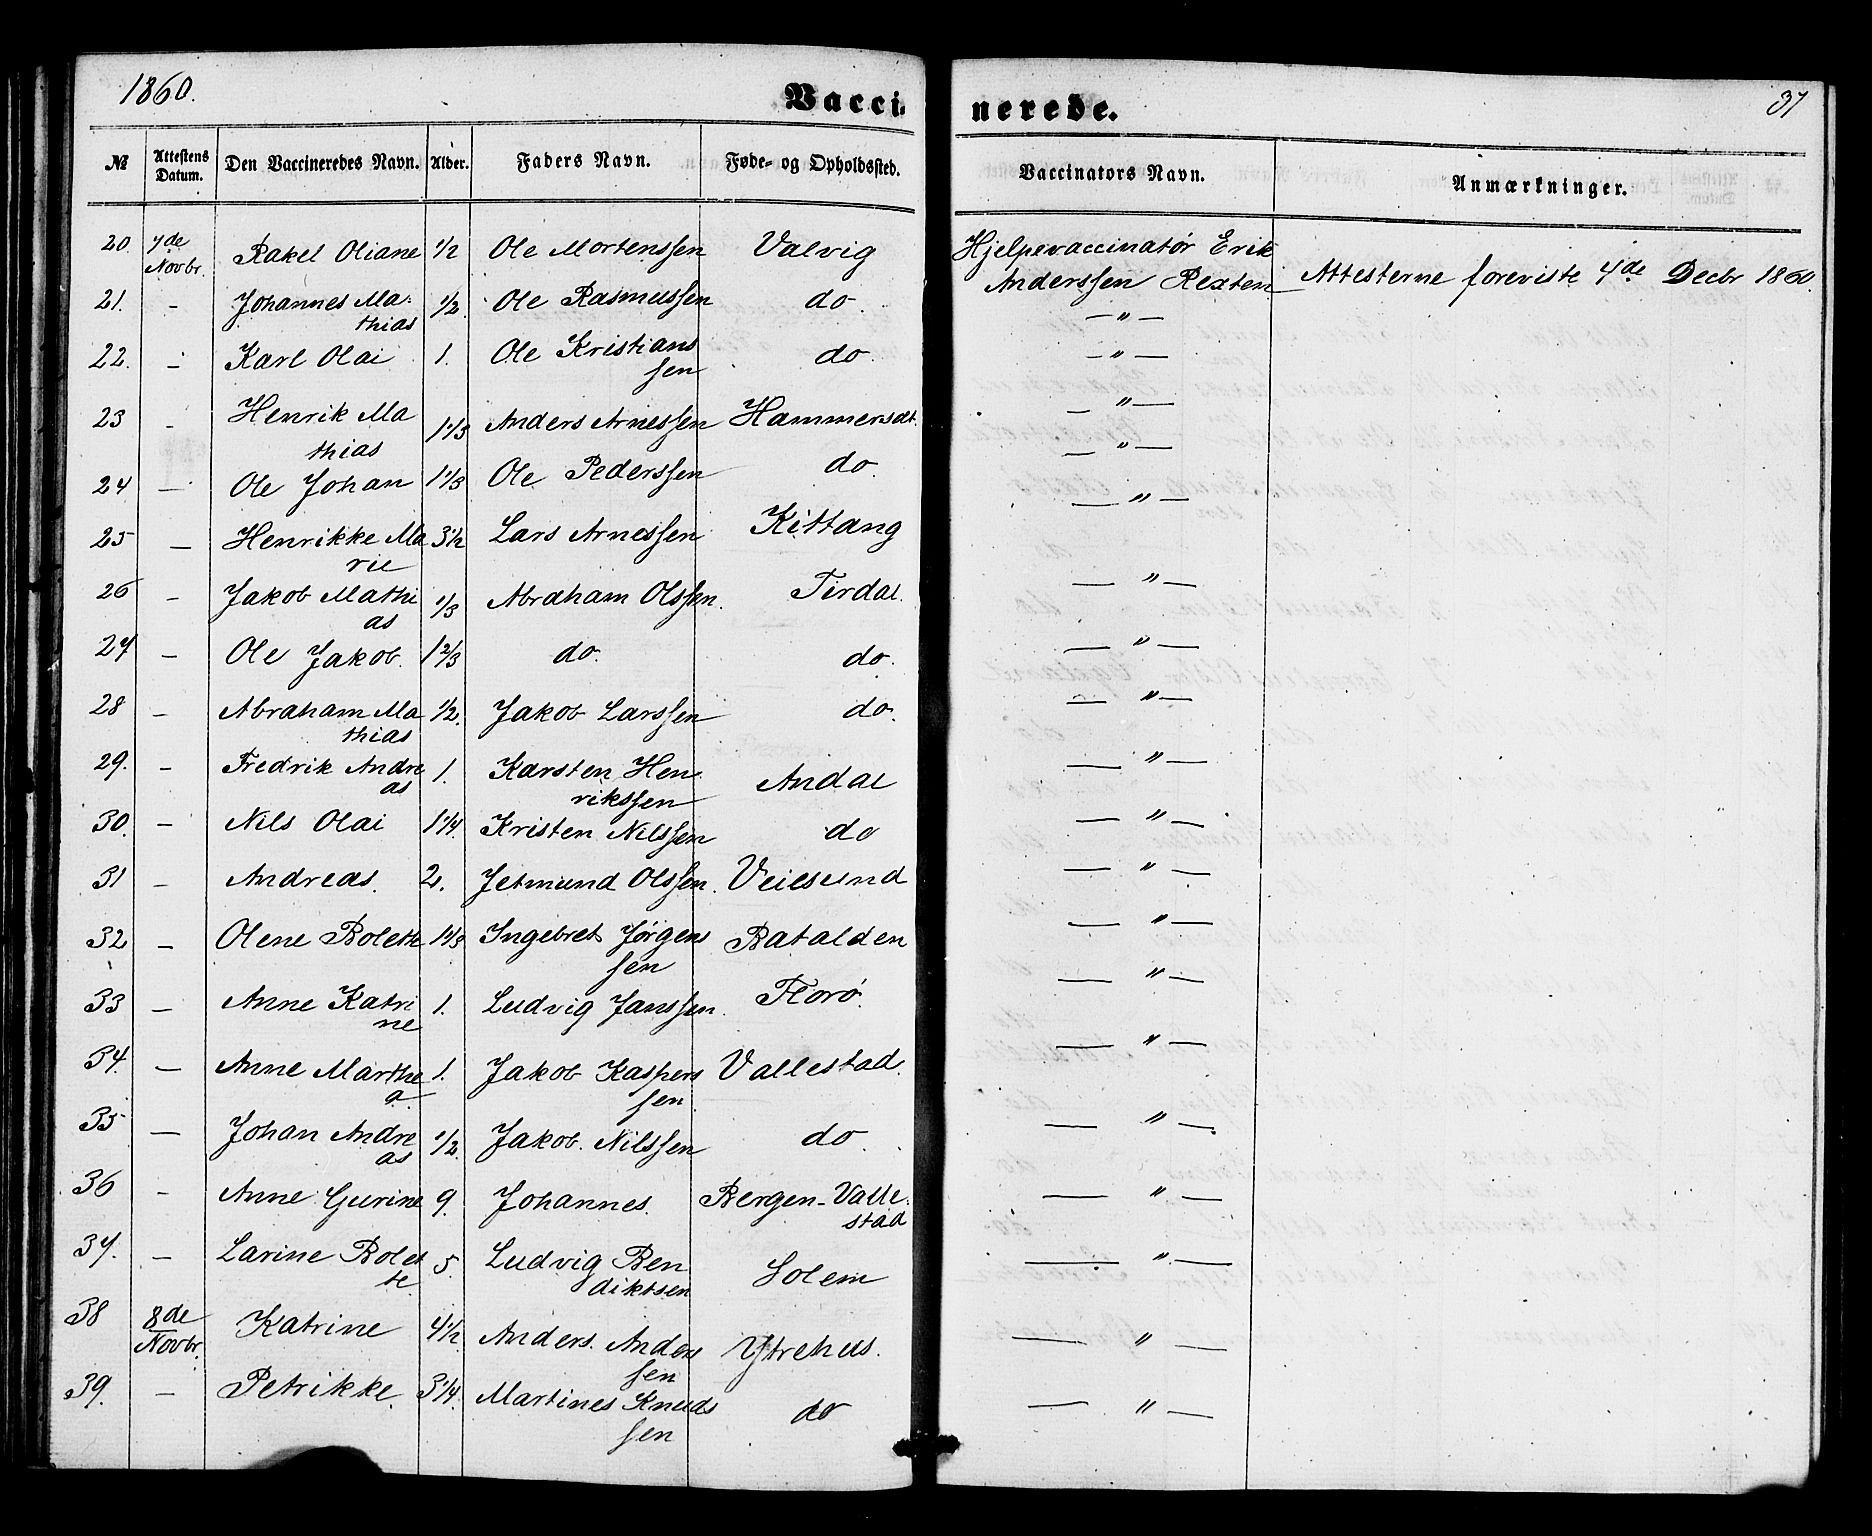 1860.
Vacci-
nerede.
37
№
Attestens Datum.
Den Vaccineredes Navn.
Alder.
Faders Navn.
Føde- og Opholdssted.
Vaccinators Navn.
Anmærkninger.
20. 7de Novbr. Rakel Oliane 1/2 Ole Mortenssen Valvig Hjelpevaccinatør Erik
Anderssen Rexten Attesterne foreviste 4de Decbr 1860.
21. - Johannes Ma- 1/2 Ole Rasmussen do. — " —
thias
22. - Karl Olai 1. Ole Kristians do. — " —
sen
23 - Henrik Ma 1 1/3 Anders Arnessen Hammersdt. — " —
thias
24 — Ole Johan 1 1/3 Ole Pederssen do. — " —
25 — Henrikke Ma 3 1/2 Lars Arnessen Kittang — " —
rie
26 - Jakob Mathi 1/3 Abraham Olssen. Tirdal. — " —
as
27 — Ole Jakob. 1 2/3 do. do. — " —
28 — Abraham Ma 1/2. Jakob Larssen do. — " —
thias
29. - Fredrik Andre 1. Karsten Hen Andal — " —
as rikssen
30. — Nils Olai 1 1/4. Kristen Nilssen do — " —
31 — Andreas. 2. Jetmund Olssen. Veiesund — " —
32 — Olene Bolette 1 1/3 Ingebret Jørgens Batalden — " —
sen
33 — Anne Katri 1. Ludvig Janssen. Florø. — " —
ne
34. — Anne Marthe 1. Jakob Kaspers Vallestad. — " —
a sen
35 — Johan Andre 1/2. Jakob. Nilssen do. — " —
as
36 - Anne Gurine 9. Johannes. Bergen-Valle- — " —
stad
37. — Larine Bolet 5. Ludvig Ben Solem — " —
te diktsen
38 8de Novbr. Katrine 4 1/2 Anders. Anders Ytrehus. — " —
sen
39. — Petrikke. 3 1/4. Martines Knuds do — " —
sen